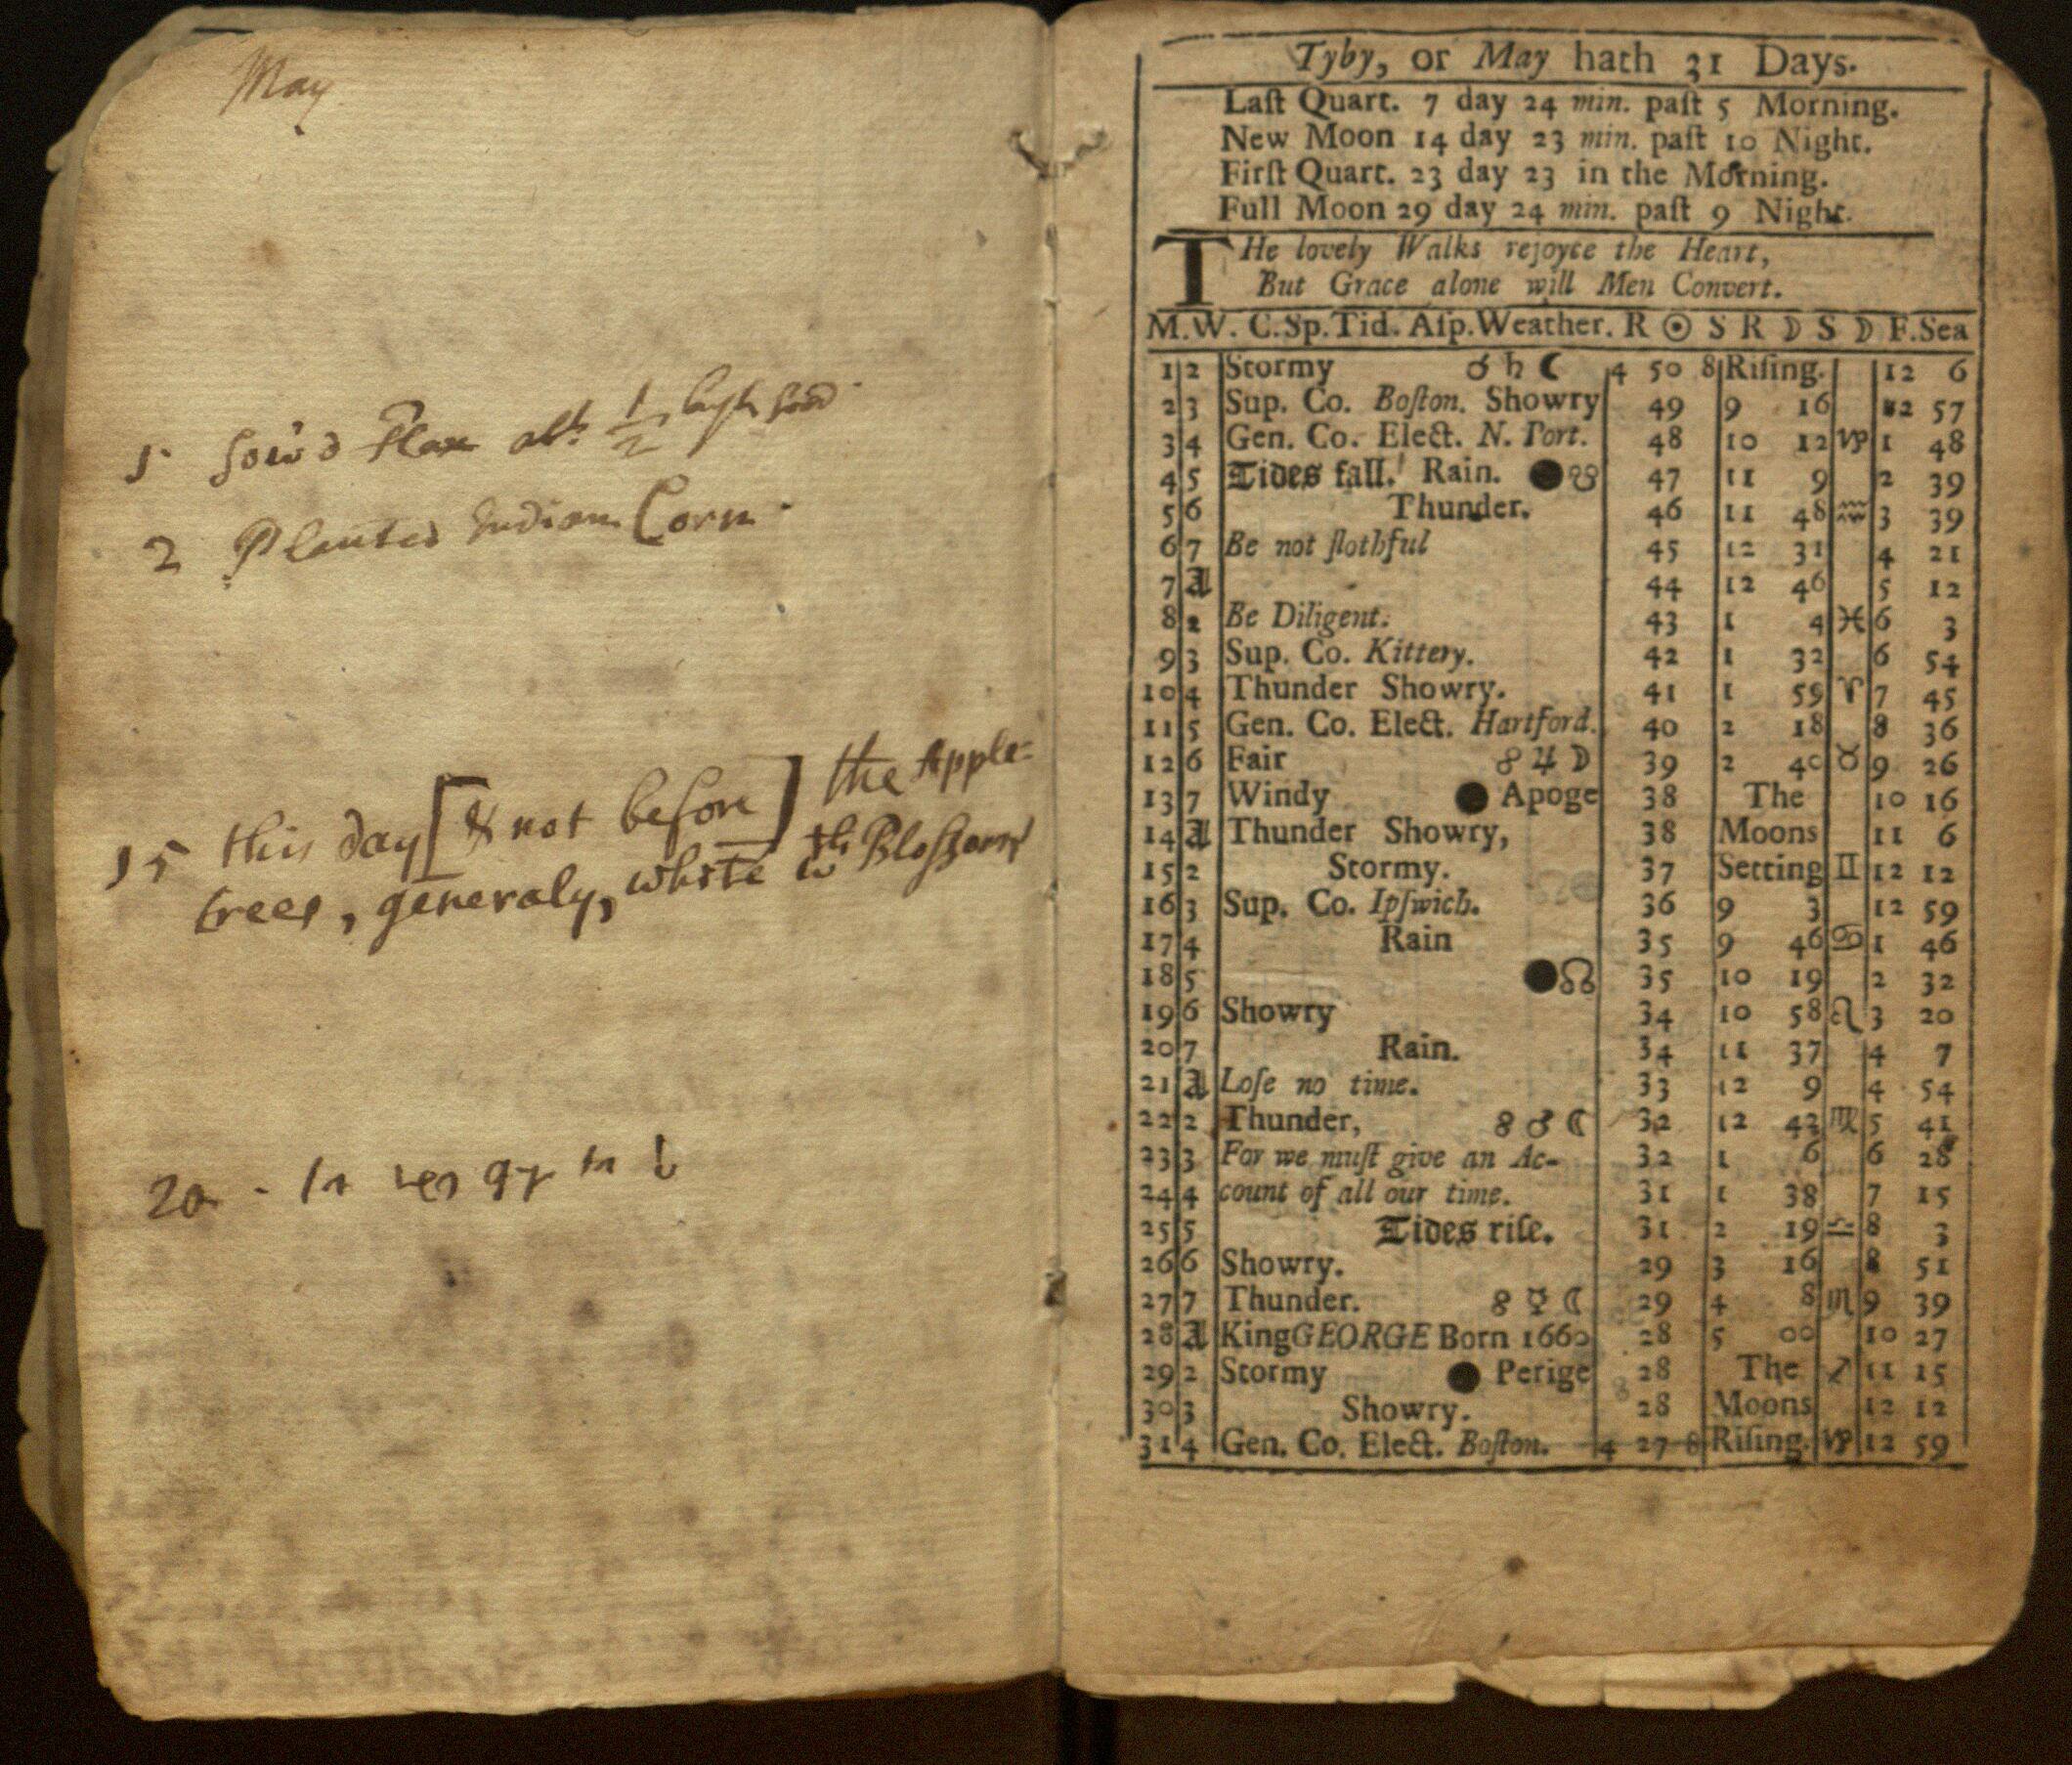 May
1 sow'd Flax abt 1/2 bush seed
2 Planted Indian Corn
15 this day [& not before] the Apple=
trees, generaly, white wth Blossoms
20
Tyby, or May hath 31 Days.
Laſt Quart. 7 day 24 min. paſt 5 Morning.
New Moon 14 day 23 min. paſt 10 Night.
Firſt Quart. 23 day 23 in the Morning.
Full Moon 29 day 24 min. paſt 9 Night.
THe lovely Walks rejoyce the Heart,
But Grace alone will Men Convert.
M.W. C.Sp.Tid. Aſp.Weather. R ☉ S R ☽ S ☽ F.Sea
1 2 Stormy ☌ ♄ ☾ 4 50 8 Riſing. 12 6
2 3 Sup. Co. Boſton. Showry 49 9 16 12 57
3 4 Gen. Co. Elect. N. Port. 48 10 12 ♑ 1 48
4 5 Tides fall. Rain. ● ☋ 47 11 9 2 39
5 6 Thunder. 46 11 48 ♒ 3 39
6 7 Be not ſlothful 45 12 31 4 21
7 A 44 12 46 5 12
8 2 Be Diligent. 43 1 4 ♓ 6 3
9 3 Sup. Co. Kittery. 42 1 32 6 54
10 4 Thunder Showry. 41 1 59 ♈ 7 45
11 5 Gen. Co. Elect. Hartford. 40 2 18 8 36
12 6 Fair ☍ ♃ ☽ 39 2 40 ♉ 9 26
13 7 Windy ● Apoge 38 The 10 16
14 A Thunder Showry, 38 Moons 11 6
15 2 Stormy. 37 Setting ♊ 12 12
16 3 Sup. Co. Ipſwich. 36 9 3 12 59
17 4 Rain 35 9 46 ♋ 1 46
18 5 ● ☊ 35 10 19 2 32
19 6 Showry 34 10 58 ♌ 3 20
20 7 Rain. 34 11 37 4 7
21 A Loſe no time. 33 12 9 4 54
22 2 Thunder, ☍ ♂ ☾ 32 12 42 ♍ 5 41
23 3 For we muſt give an Ac- 32 1 6 6 28
24 4 count of all our time. 31 1 38 7 15
25 5 Tides riſe. 31 2 19 ♎ 8 3
26 6 Showry. 29 3 16 8 51
27 7 Thunder. ☍ ☿ ☾ 29 4 8 ♏ 9 39
28 A King GEORGE Born 1660 28 5 00 10 27
29 2 Stormy ● Perige 28 The ♐ 11 15
30 3 Showry. 28 Moons 12 12
31 4 Gen. Co. Elect. Boſton. 4 27 8 Riſing. ♑ 12 59